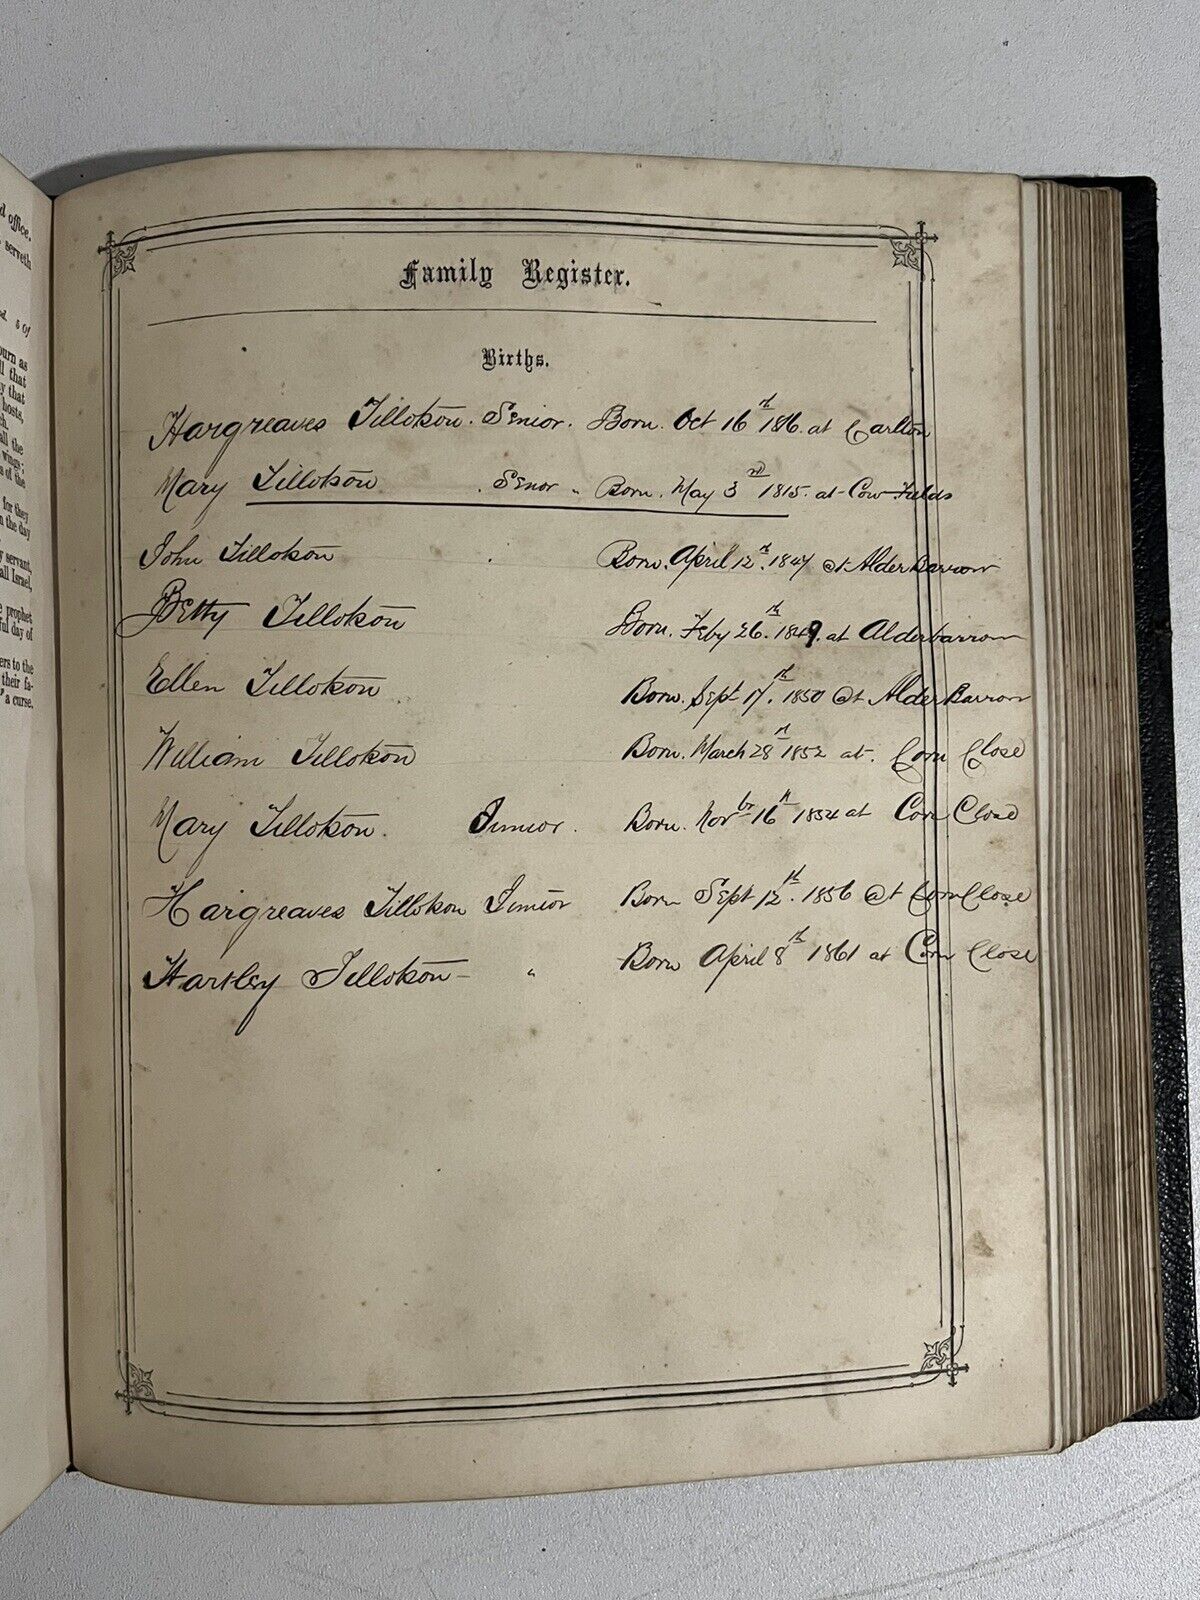 d office.
serveth
d. 5 Of
ourn as
ll that
y that
hosts,
ch.
all the
wings;
s of the
for they
n the day
y servant,
all Israel,
e prophet
ful day of
ers to the
their fa-
a curse.
Family Register.
Births.
Hargreaves Tillotson. Senior. Born. Oct 16th 1816. at Carlton
Mary Tillotson . Senor " Born. May 3rd 1815. at Cow Fields
John Tillotson Born. April 12th. 1847 at Alder Barrow
Betty Tillotson Born. Feby 26th. 1849. at Alderbarrow
Ellen Tillotson Born. Sept 17th. 1850 at Alder Barrow
William Tillotson Born. March 28th 1852 at. Corn Close
Mary Tillotson. Junior. Born. Novbr 16th 1854 at Corn Close
Hargreaves Tillotson Junior Born Sept 12th. 1856 at Corn Close
Hartley Tillotson " Born April 8th 1861 at Corn Close